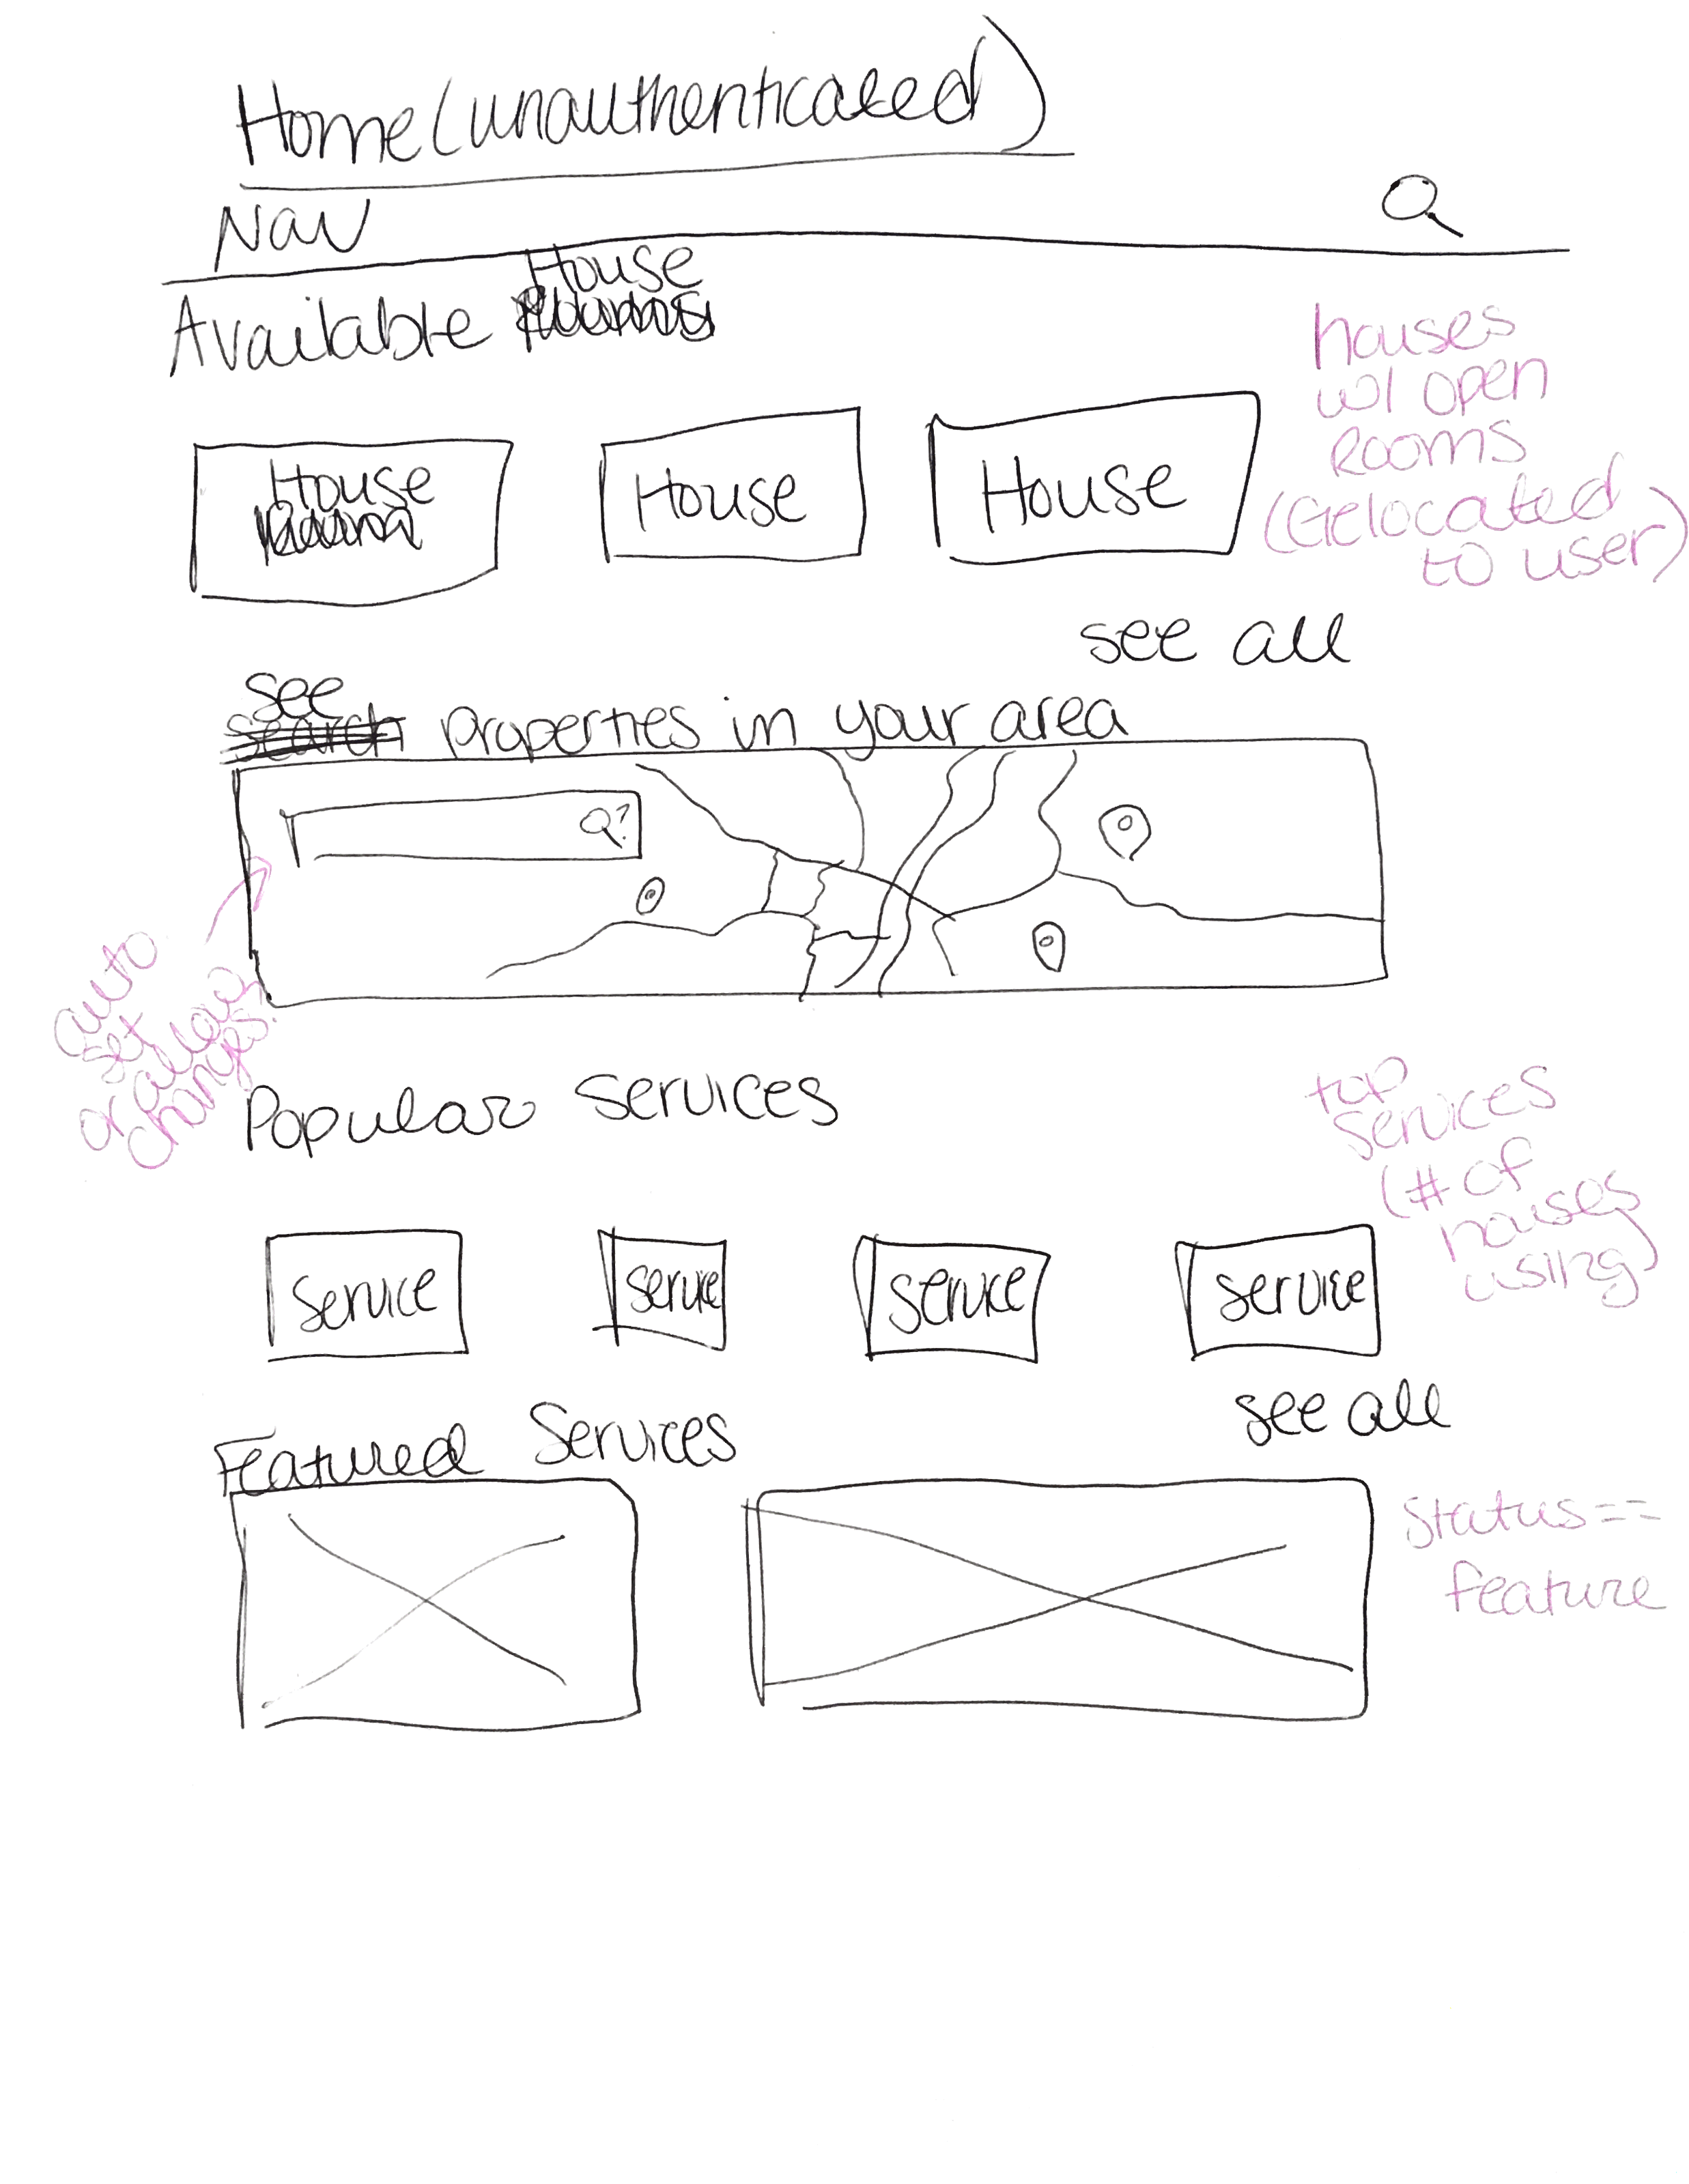 Home (unauthenticated)
Nav
House
Available
houses
w/ open
Rooms
(Gelocated
to user)
House
House
House
see all
see
search properties in your area
Q?
auto
set
or allow
changes?
Popular Services
top
services
(# of
houses
using)
Service
Service
Service
Service
see all
Featured Services
Status==
feature